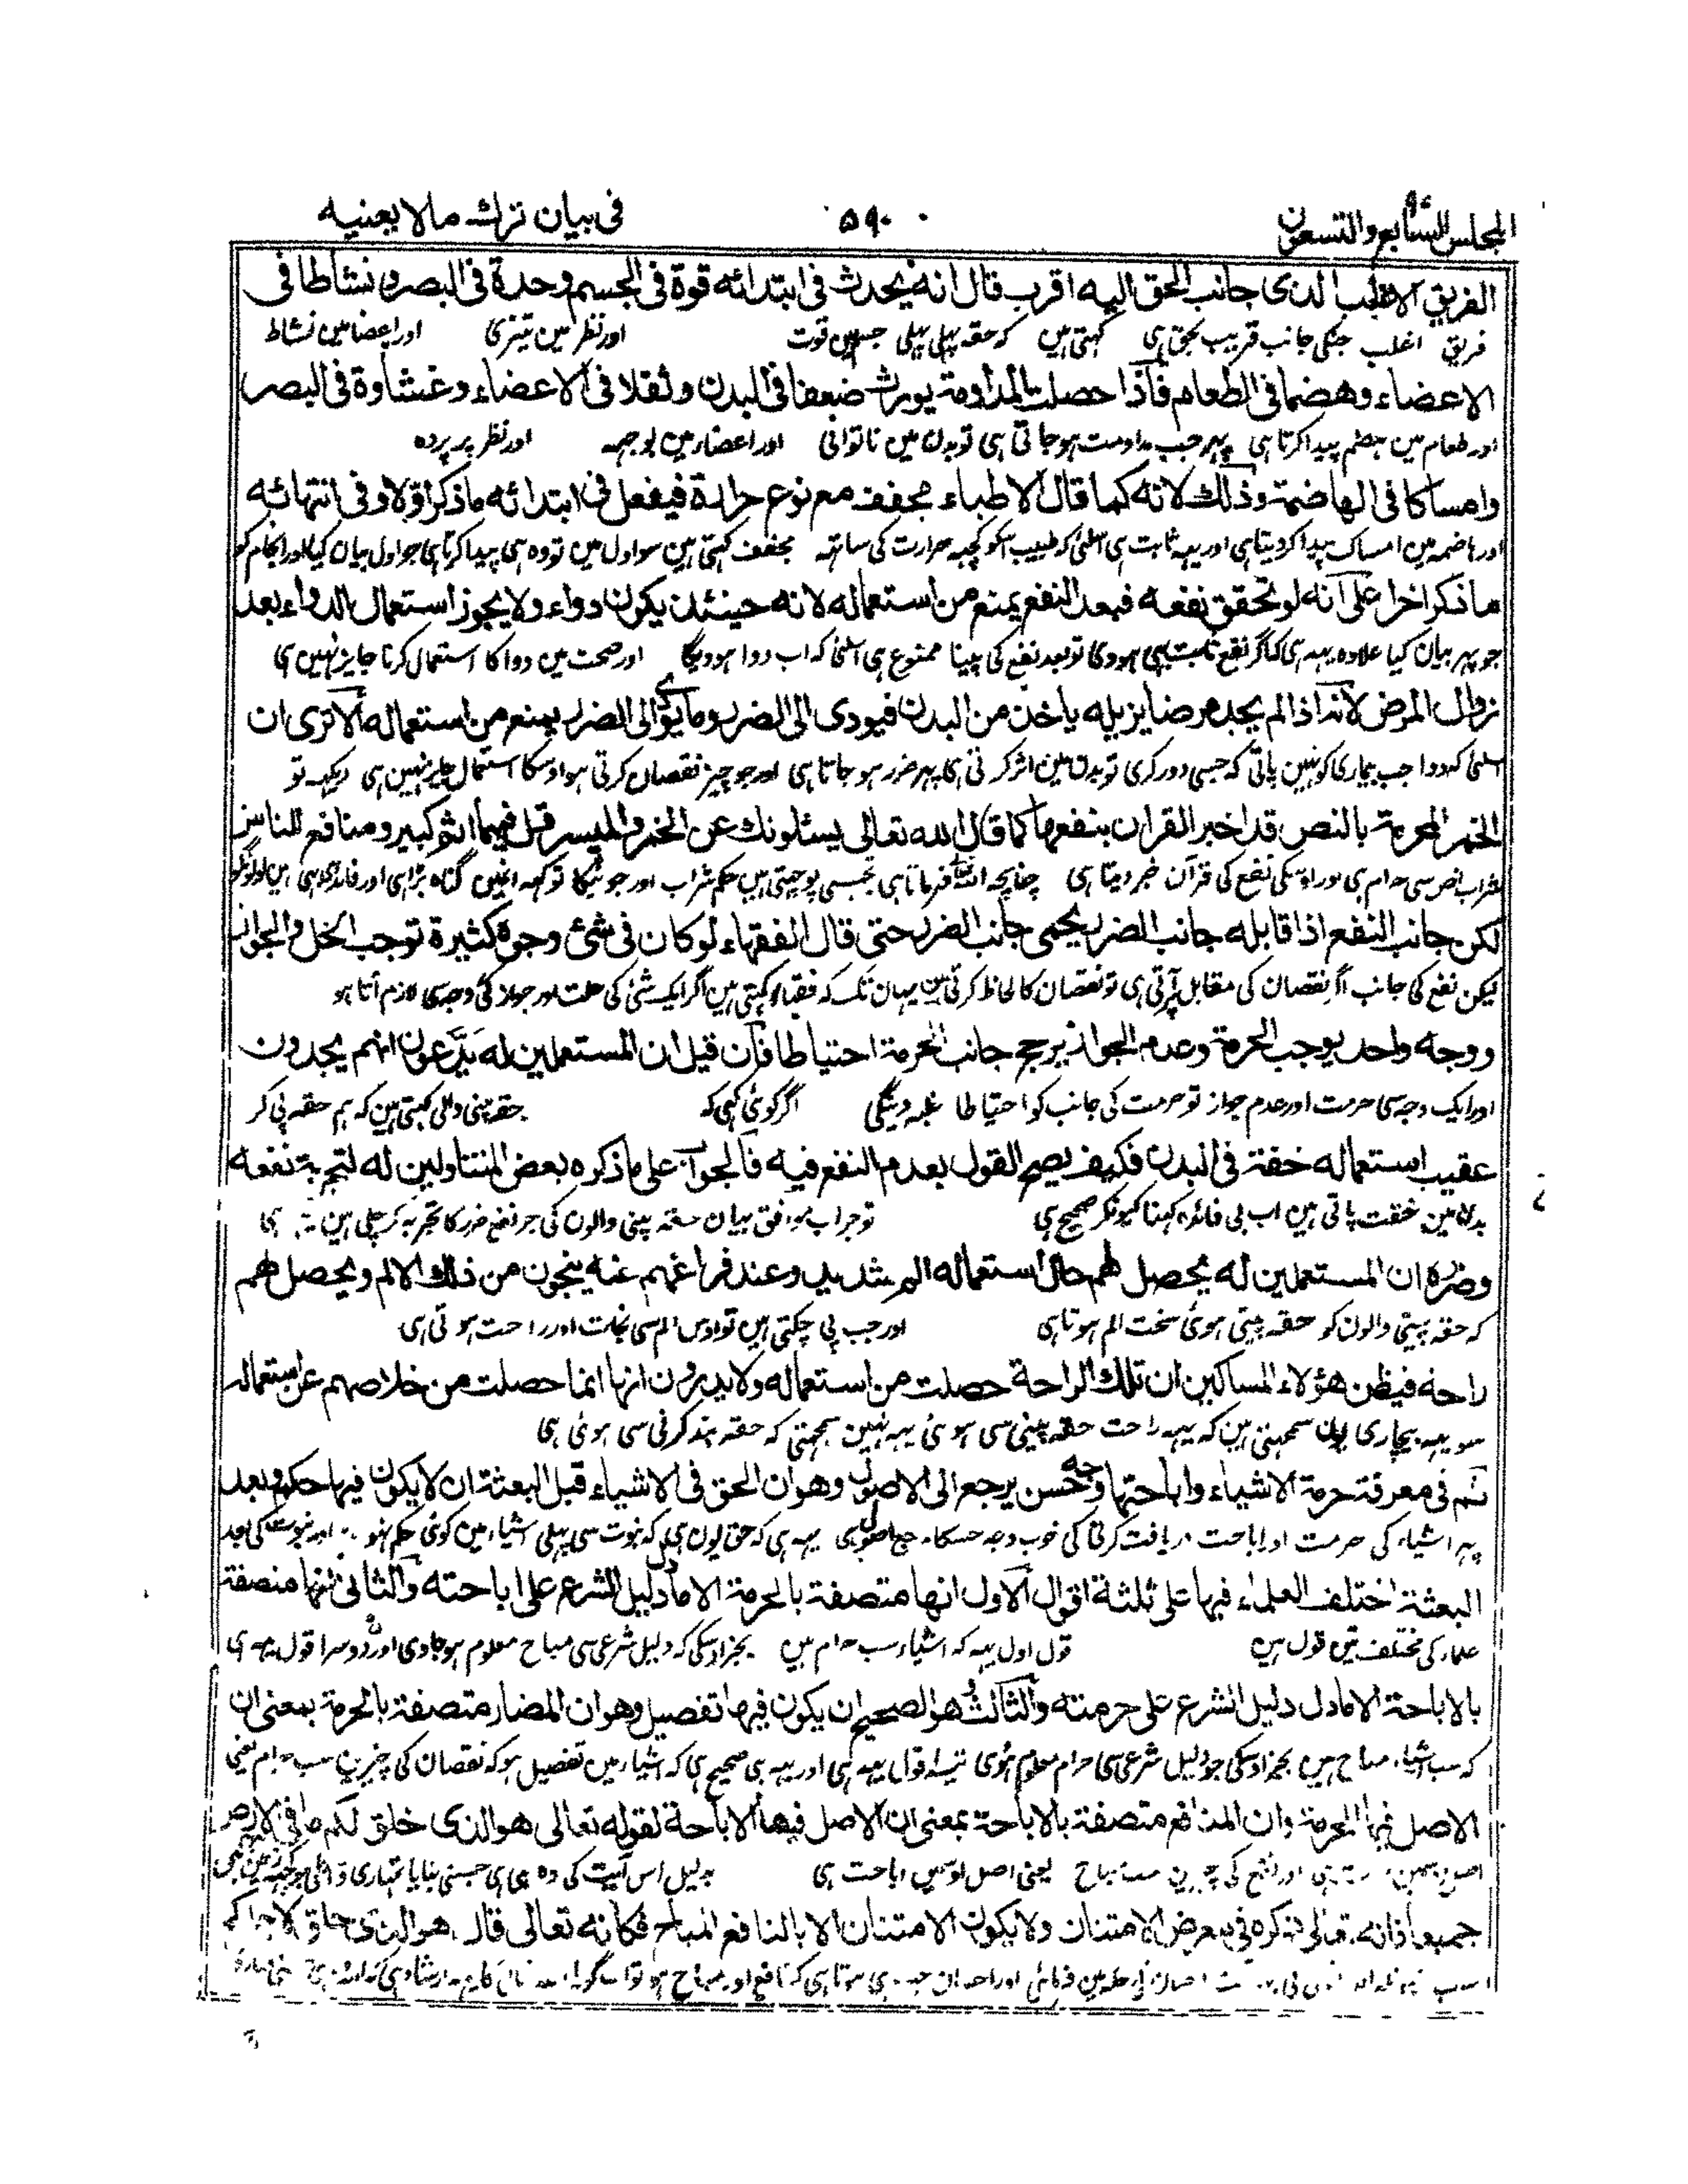 المجلس السابع والتسعون
۵۹۰
فی بیان ترك مالا یعنیه
الفریق الاغلب الذی جانب الحق الیه اقرب قال انه یحدث فی ابتدائه قوة فی الجسم وحدة فی البصر و نشاطا فی
فریق اغلب جنکی جانب قریب بحق ہی کہتی ہیں کہ حقہ پہلی پہلی جسمین قوت اور نظر مین تیزی اور اعضا مین نشاط
الاعضاء وهضما فی الطعام فاذا حصلت المداومة یورث ضعفا فی البدن و ثقلا فی الاعضاء وغشاوة فی البصر
اور طعام مین ہضم پیدا کرتا ہی پہر جب مداومت ہو جاتی ہی تو بدن مین ناتوانی اور اعضاء مین بوجہہ اور نظر پر پردہ
وامساکا فی الهاضمة وذلك لانه کما قال الاطباء مجفف مع نوع حرارة فیفعل فی ابتدائه ما ذکر اولا و فی انتهائه
اور ہاضمہ مین امساک پیدا کر دیتا ہی اور یہہ ثابت ہی اسلئی کہ طبیب اسکو کچہہ حرارت کی ساتہہ مجفف کہتی ہین سو اول مین تو وہ ہی پیدا کرتا ہی جو اول بیان کیا اور انجام کو
ما ذکر اخرا علی انه لو تحقق نفعه فبعد النفع یمنع من استعماله لانه حینئذ یکون دواء ولا یجوز استعمال الدواء بعد
جو پہر بیان کیا علاوہ یہہ ہی کہ اگر نفع ثابت بہی ہووی تو بعد نفع کی پینا ممنوع ہی اسلئی کہ اب دوا ہوویگا اور صحت مین دوا کا استعمال کرنا جایز نہین ہی
زوال المرض لانه اذا لم یجد مرضا یزیله یاخذ من البدن فیودی الی الضرر وما یودی الی الضرر یمنع من استعماله الا تری ان
اسلئی کہ دوا جب بیماری کو نہین پاتی کہ جسی دور کری تو بدن مین اثر کرتی ہی پہر ضرر ہو جاتا ہی اور جو چیز نقصان کرتی ہو اوسکا استعمال جایز نہین ہی دیکہہ تو
الخمر المحرمة بالنص قد اخبر القران بنفعها کما قال الله تعالی یسئلونك عن الخمر والمیسر قل فیهما اثم کبیر ومنافع للناس
شراب نص سی حرام ہی اور اوسکی نفع کی قرآن خبر دیتا ہی چنانچہ اللہ فرماتا ہی تجہسی پوچہتی ہیں حکم شراب اور جوئیکا تو کہہ انمیں گناہ بڑا ہی اور فائدی بہی ہین لوگونکو
لکن جانب النفع اذا قابله جانب الضرر یحمی جانب الضرر حتی قال الفقهاء لو کان فی شئ وجوه کثیرة توجب الحل والجواز
لیکن نفع کی جانب اگر نقصان کی مقابل آ پڑتی ہی تو نقصان کا لحاظ کرتی ہین یہان تک کہ فقہاء کہتی ہین اگر ایک شئی کی حلت اور جواز کئی وجہ سی لازم آتا ہو
ووجه واحد یوجب الحرمة وعدم الجواز یرجح جانب الحرمة احتیاطا فان قیل ان المستعملین له یدعون انهم یجدون
اور ایک وجہ سی حرمت اور عدم جواز تو حرمت کی جانب کو احتیاطا غلبہ دینگی اگر کوئی کہی کہ حقہ پینی والی کہتی ہین کہ ہم حقہ پی کر
عقیب استعماله خفة فی البدن فکیف یصح القول بعدم النفع فیه فالجواب علی ما ذکره بعض المتناولین له لتجربة نفعه
بدن مین خفت پاتی ہین اب بی فائدہ کہنا کیونکر صحیح ہی تو جواب موافق بیان حقہ پینی والون کی جو نفع ضرر کا تجربہ کر چکی ہین ہی
وضره ان المستعملین له یحصل لهم حال استعماله الم شدید وعند فراغهم عنه ینجون من ذلك الالم ویحصل لهم
کہ حقہ پیتی والون کو حقہ پیتی ہوئی سخت الم ہوتا ہی اور جب پی چکتی ہین تو اوس الم سی نجات اور راحت ہوتی ہی
راحة فیظن هؤلاء المساکین ان تلك الراحة حصلت من استعماله ولا یدرون انها انما حصلت من خلاصهم عن استعماله
سو یہہ بیچاری یون سمجہتی ہین کہ یہہ راحت حقہ پینی سی ہوئی یہہ نہین سمجہتی کہ حقہ بند کرنی سی ہوئی ہی
ثم فی معرفة حرمة الاشیاء واباحتها وجه حسن یرجع الی الاصول وهو ان الحق فی الاشیاء قبل البعثة ان لا یکون فیها حکم وبعد
پہر اشیاء کی حرمت اور اباحت دریافت کرنی کی خوب وجہ یہہ ہی کہ حق یون ہی کہ نبوت سی پہلی اشیاء مین کوئی حکم نہو اور نبوت کی بعد
البعثة اختلف العلماء فیها علی ثلثة اقوال الاول انها متصفة بالحرمة الا ما دل دلیل الشرع علی اباحته والثانی انها متصفة
علماء کی مختلف تین قول ہین قول اول یہہ کہ اشیاء سب حرام ہین بجز اوسکی کہ دلیل شرعی سی مباح معلوم ہو جاوی اور دوسرا قول یہہ ہی
بالاباحة الا ما دل دلیل الشرع علی حرمته والثالث وهو الصحیح ان یکون فیها تفصیل وهو ان المضار متصفة بالحرمة بمعنی ان
کہ سب اشیاء مباح ہین بجز اوسکی جو دلیل شرعی سی حرام معلوم ہوئی تیسرا قول یہہ ہی اور یہہ ہی صحیح ہی کہ اشیاء مین تفصیل ہو کہ نقصان کی چیزین سب حرام یعنی
الاصل فیها الحرمة وان المنافع متصفة بالاباحة بمعنی ان الاصل فیها الاباحة لقوله تعالی هو الذی خلق لکم ما فی الارض
اور نفع کی چیزین سب مباح یعنی اصل اونمیں اباحت ہی بدلیل اس آیت کی وہ ہی ہی جسنی بنایا تمہاری
جمیعا اذ انه تعالی ذکره فی معرض الامتنان ولا یکون الامتنان الا بالنافع المباح فکانه تعالی قال هو الذی خلق لاجلکم